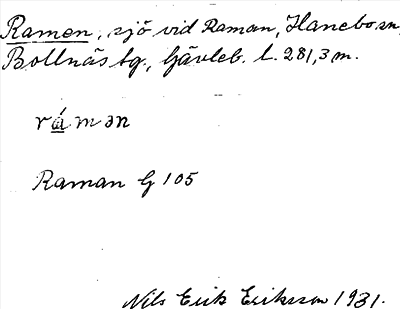 Ramen, sjö vid Raman, Hanebo sn,
Bollnäs tg., Gävleb. l. 281,3 m.
rámən
Raman G 105
Nils Erik Eriksson 1931.